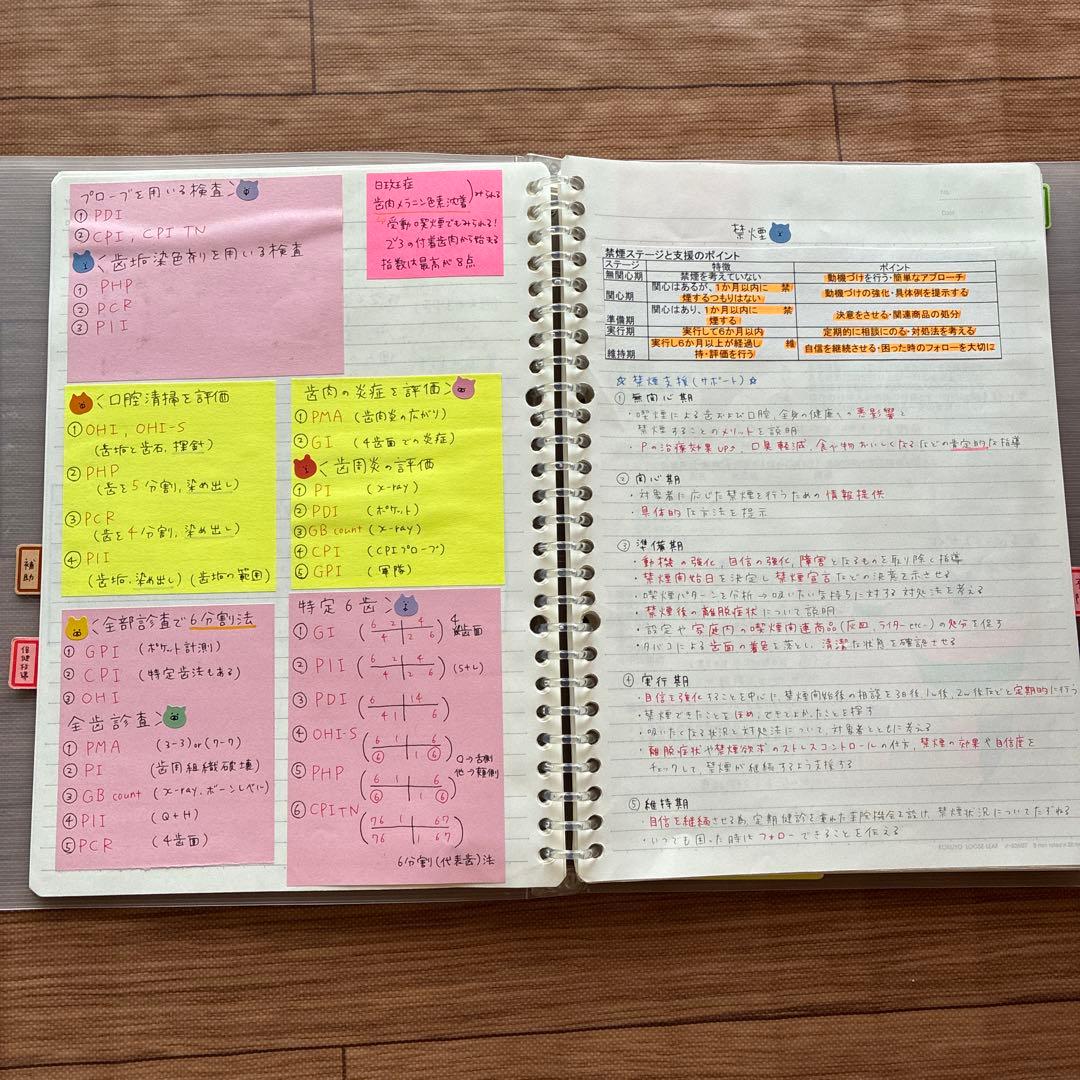 プローブを用いる検査
① PDI
② CPI, CPITN
歯垢染色剤を用いる検査
① PHP
② PCR
③ PlI
白斑症
歯肉メラニン色素沈着 みられる
受動喫煙でもみられる!
の付着歯肉から始まる
指数は最高が8点
口腔清掃を評価
① OHI, OHI-S
(歯垢と歯石, 探針)
② PHP
(歯を5分割, 染め出し)
③ PCR
(歯を4分割, 染め出し)
④ PlI
(歯垢, 染め出し) (歯垢の範囲)
歯肉の炎症を評価
① PMA (歯肉炎の広がり)
② GI (4歯面での炎症)
歯周炎の評価
① PI (x-ray)
② PDI (ポケット)
③ GB count (x-ray)
④ CPI (CPIプローブ)
⑤ GPI (軍隊)
全部診査で6分割法
① GPI (ポケット計測)
② CPI (特定歯法もある)
③ OHI
全歯診査
① PMA (3-3)or(7-7)
② PI (歯周組織破壊)
③ GB count (x-ray, ボーンレベル)
④ PlI (Q+H)
⑤ PCR (4歯面)
特定6歯
① GI (6 2 4 4 2 6) 4歯面
② PlI (6 2 4 4 2 6) (S+L)
③ PDI (6 1 4 4 1 6)
④ OHI-S (6 1 6 6 1 6)
⑤ PHP (6 1 6 6 1 6)
□→舌側
他→頬側
⑥ CPITN (76 1 67 76 1 67)
6分割(代表歯)法
補助
保健指導
禁煙
禁煙ステージと支援のポイント
ステージ 特徴 ポイント
無関心期 禁煙を考えていない 動機づけを行う・簡単なアプローチ
関心期 関心はあるが、1か月以内に 禁煙するつもりはない 動機づけの強化・具体例を提示する
準備期 関心はあり、1か月以内に 禁煙する 決意をさせる・関連商品の処分
実行期 実行して6か月以内 定期的に相談にのる・対処法を考える
維持期 実行し6か月以上が経過し 維持・評価を行う 自信を継続させる・困った時のフォローを大切に
☆ 禁煙支援(サポート) ☆
① 無関心期
・喫煙による歯および口腔, 全身の健康への悪影響と
禁煙することのメリットを説明
・Pの治療効果up↗, 口臭軽減, 食べ物おいしくなるなどの肯定的な指導
② 関心期
・対象者に応じた禁煙を行うための情報提供
・具体的な方法を提示
③ 準備期
・動機の強化, 自信の強化, 障害となるものを取り除く指導
・禁煙開始日を決定し禁煙宣言などの決意を示させる
・喫煙パターンを分析→吸いたい気持ちに対する対処法を考える
・禁煙後の離脱症状について説明
・設定や家庭内の喫煙関連商品(灰皿, ライターetc…)の処分を促す
・タバコによる歯面の着色を落とし, 清潔な状態を確認させる
④ 実行期
・自信を強化することを中心に, 禁煙開始後の相談を3日後, 1w後, 2w後などと定期的に行う
・禁煙できたことをほめ, できてよかったことを探す
・吸いたくなる状況と対処法について, 対象者とともに考える
・離脱症状や禁煙欲求のストレスコントロールの仕方, 禁煙の効果や自信度を
チェックして, 禁煙が継続するよう支援する
⑤ 維持期
・自信を継続させる為, 定期健診を兼ねた来院機会を設け, 禁煙状況についてたずねる
・いつでも困った時にフォローできることを伝える
KOKUYO LOOSE-LEAF